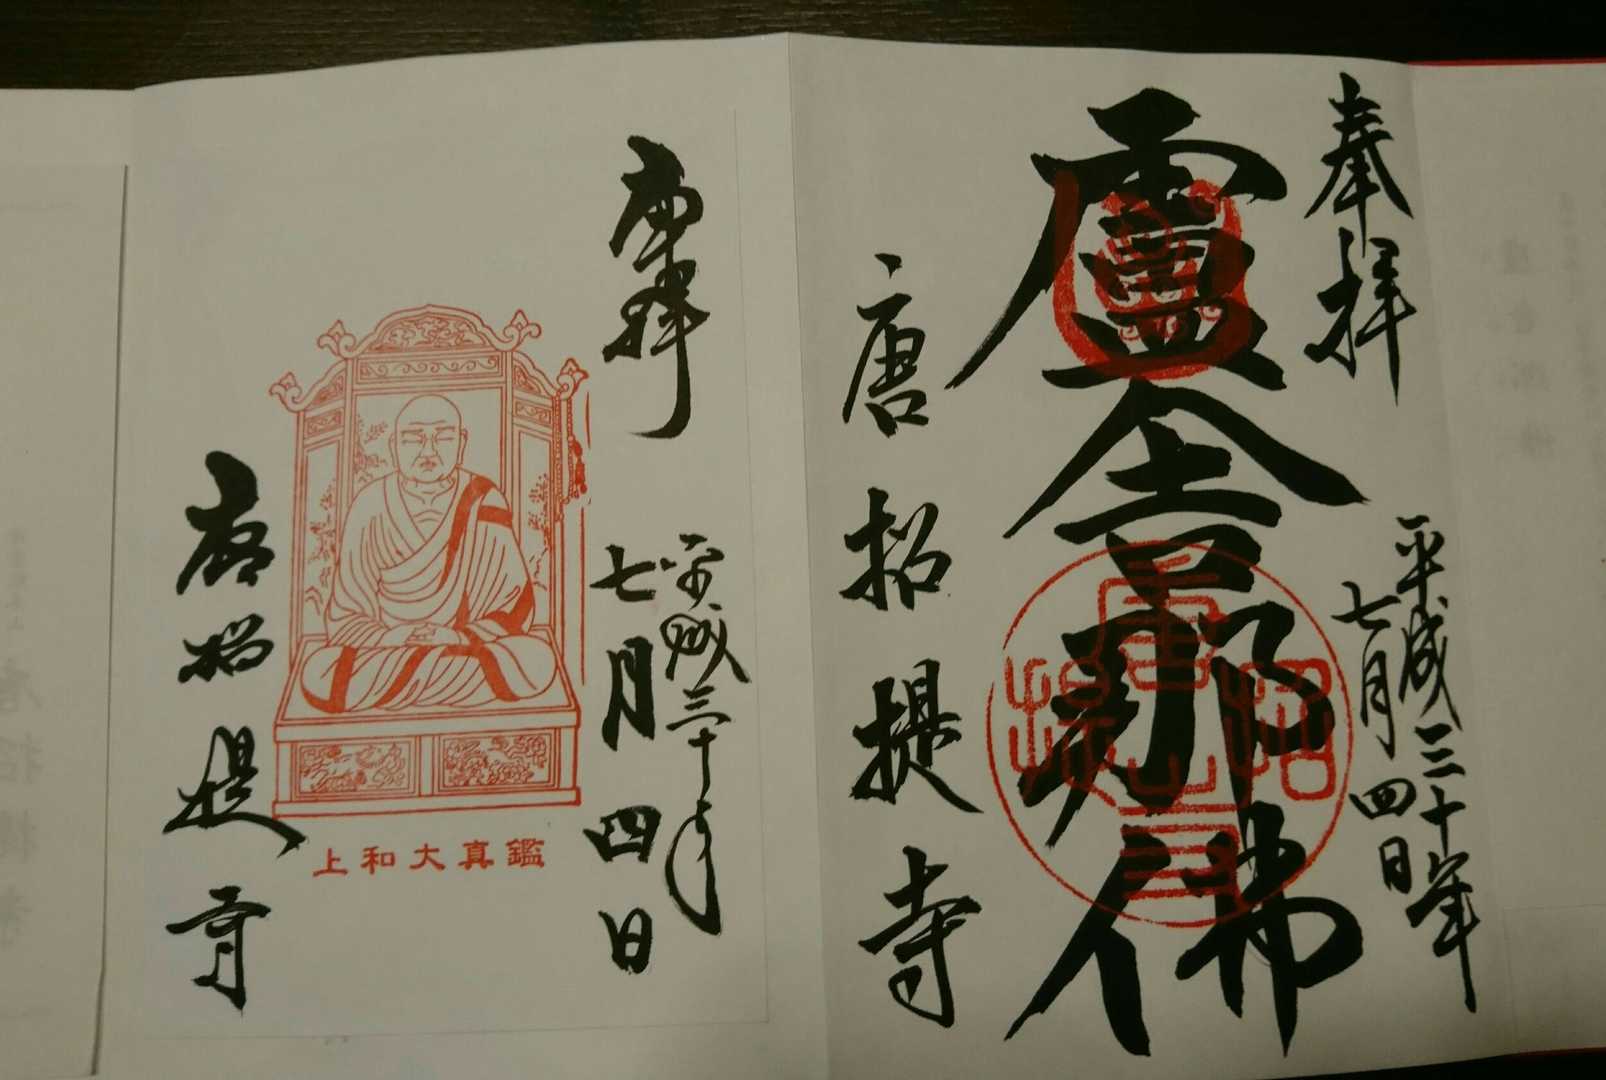 奉拝
平成三十年
七月四日
盧舎那佛
唐招提寺
奉拝
平成三十年
七月四日
鑑真大和上
唐招提寺